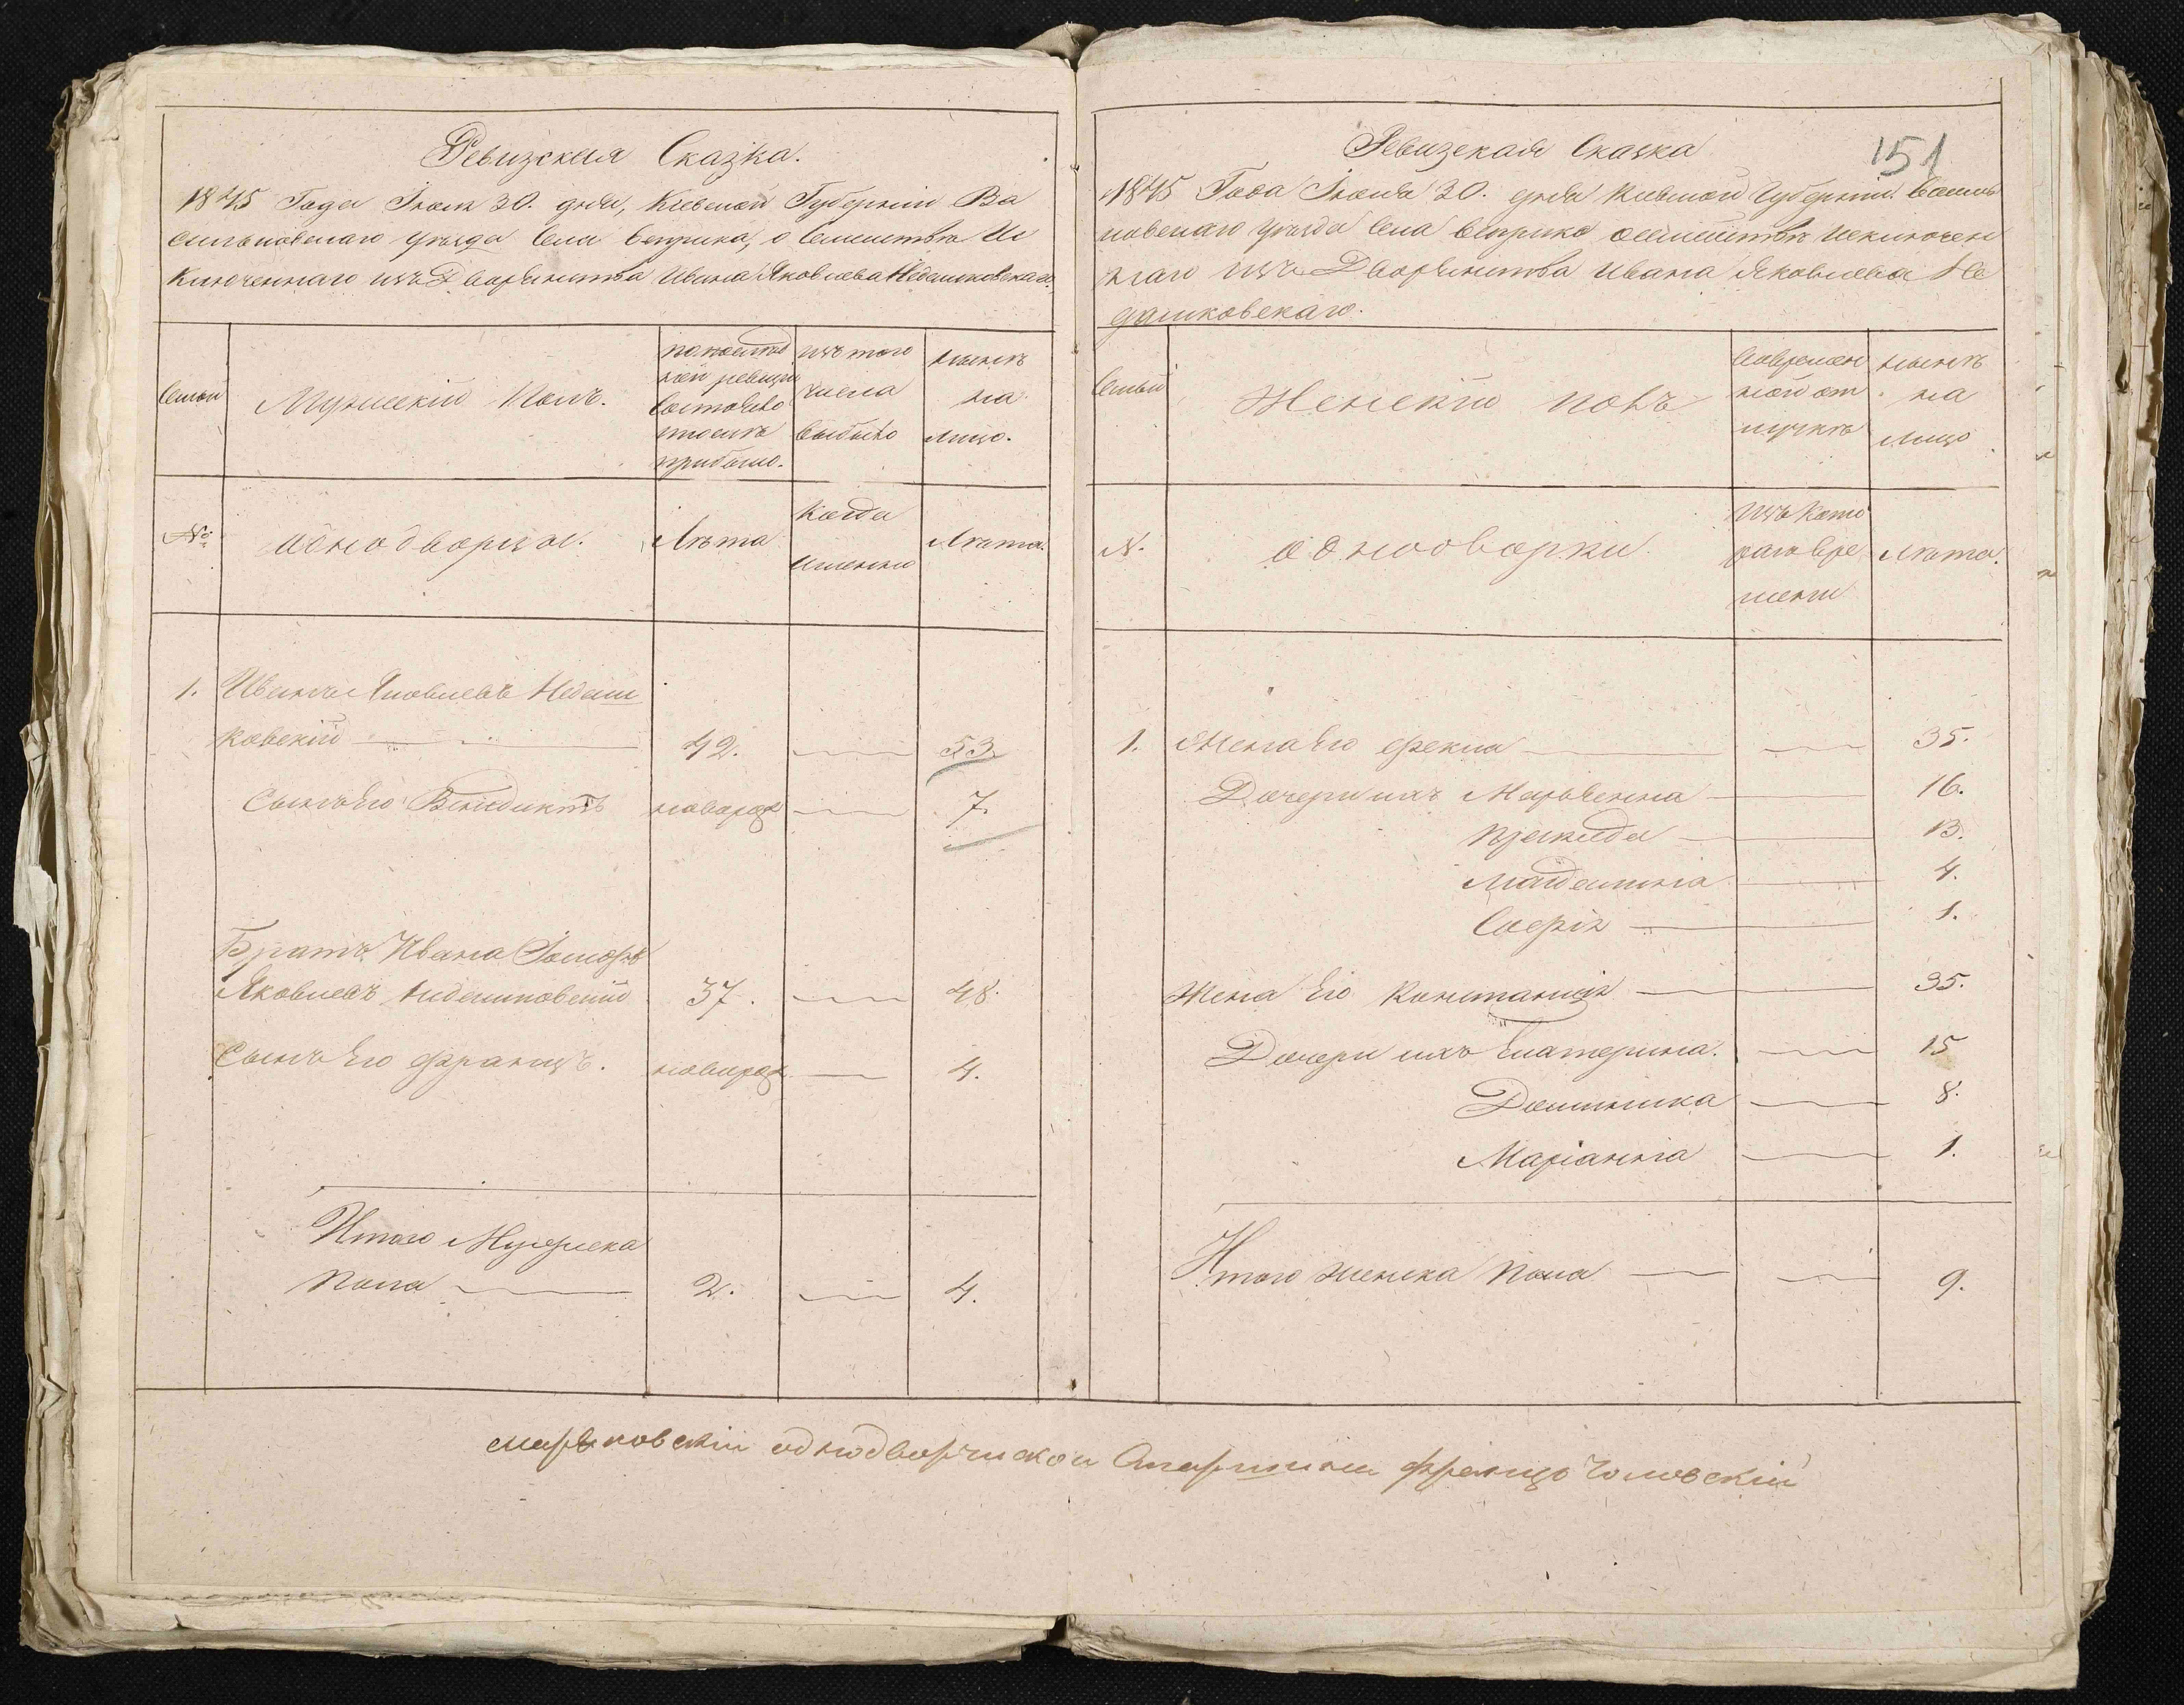 Ревизская Сказка.
1845 Года Іюня 30. дня, Кіевской Губерніи Ва
сильковскаго уѣзда Села Веприка, о Семействѣ Ис
ключеннаго изъ Дворянства Ивана Яковлева Недашковскаго.
Семьи
Мужескій Полъ.
по послѣд
ней ревизіи
Состояло
и послѣ
прибыло.
изъ того
числа
выбыло
нынѣ
на
лицо.
№
Однодворцы.
Лѣта
Когда
Именно
Лѣта.
1. Иванъ Яковлевъ Недаш
ковскій 42. 53
Сынъ Его Венедиктъ новорож 7.
Братъ Ивана
Яковлевъ Недашковскій 37. 48.
Сынъ Его Францъ. новорож 4.
Итого Мужеска
Пола 2. 4.
151
Ревизская Сказка
1845 Года Іюня 30. дня Кіевской Губерніи Василь
ковскаго уѣзда Села Веприка о Семействѣ исключен
наго изъ Дворянства Ивана Яковлева Не
дашковскаго.
Семьи
Женскій полъ
Вовремен
ной от
лучкѣ
нынѣ
на
лицо
№.
Однодворки.
Изъ кото
раго вре
мени
Лѣта.
1. Жена Его Фекла 35.
Дочери ихъ Марьенна 16.
13.
Магдалина 4.
Софія 1.
Жена Его Констанція 35.
Дочери ихъ Екатерина. 15
Доминика 8.
Маріанна 1.
Итого женска Пола 9.
однодворческой Старшина Францъ